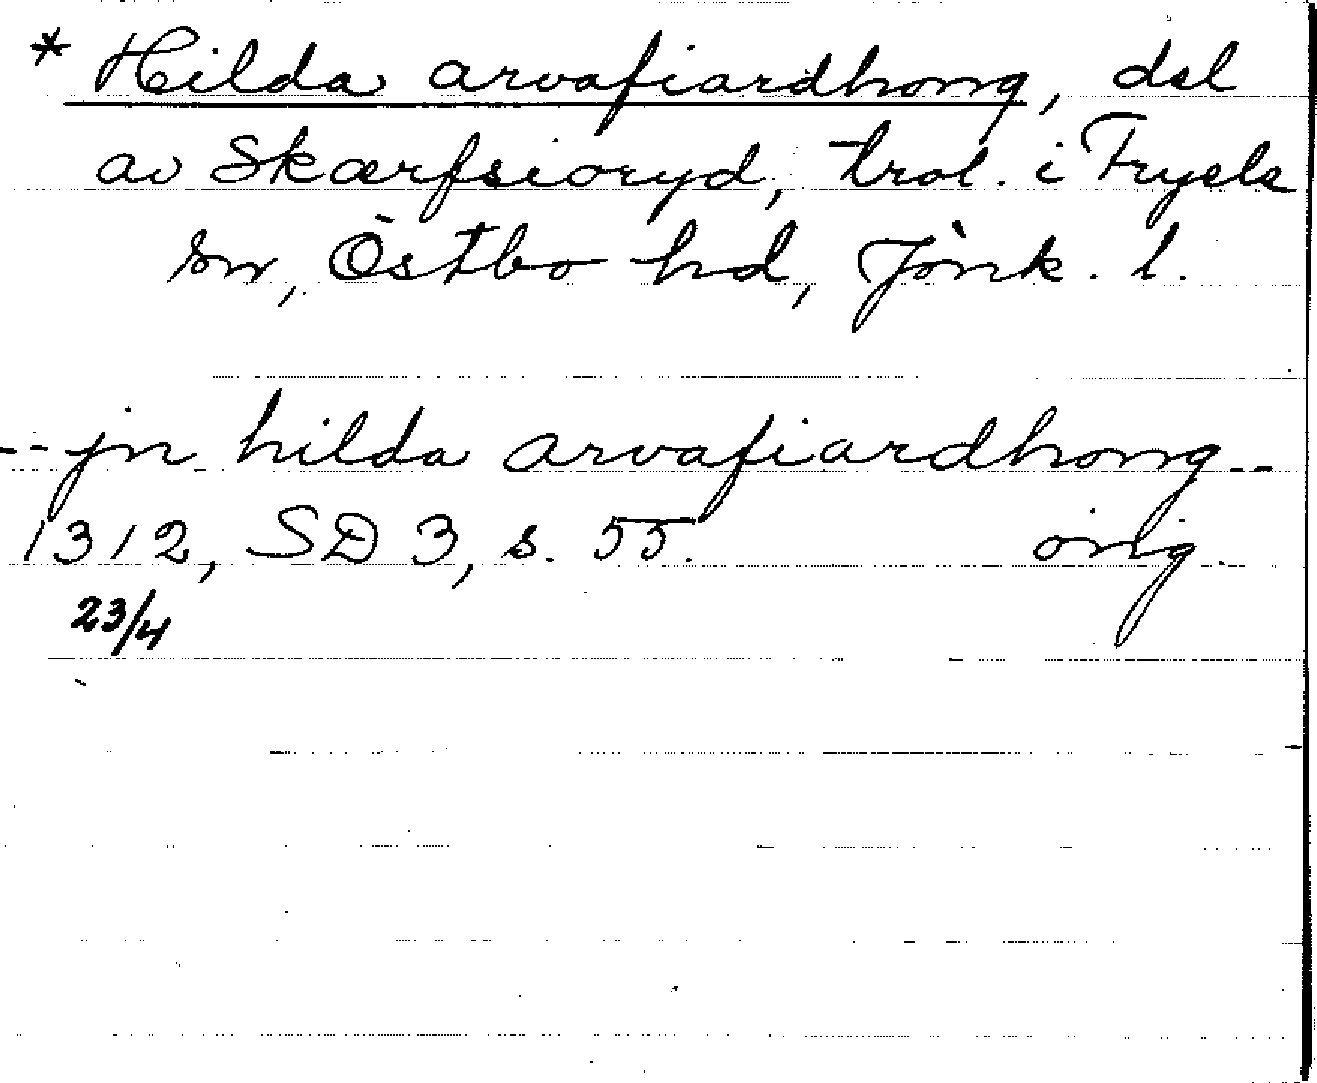 * Hilda arvafiardhong, del
av Skærfsioryd, trol. i Tryele
sn, Östbo hd, Jönk. l.
-- jn hilda arvafiardhong --
1312, SD 3, s. 55. orig.
23/4